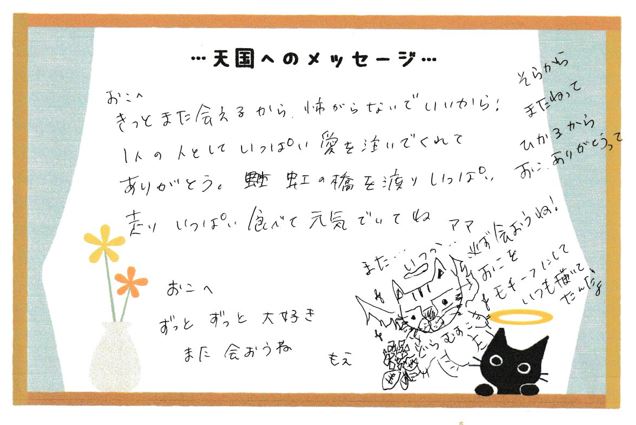 …天国へのメッセージ…
おこへ
きっとまた会えるから、怖がらないでいいから!
1人の人としていっぱい愛を注いでくれて
ありがとう。虹の橋を渡りいっぱい
走り いっぱい食べて元気でいてね
ママ
そらから
またねって
ひかるから
おこ、ありがとうって
おこへ
ずっと ずっと 大好き
また 会おうね
もえ
また… いつか…
必ず会おうね!
おこを
モチーフにして
いつも描いて
たんだよ